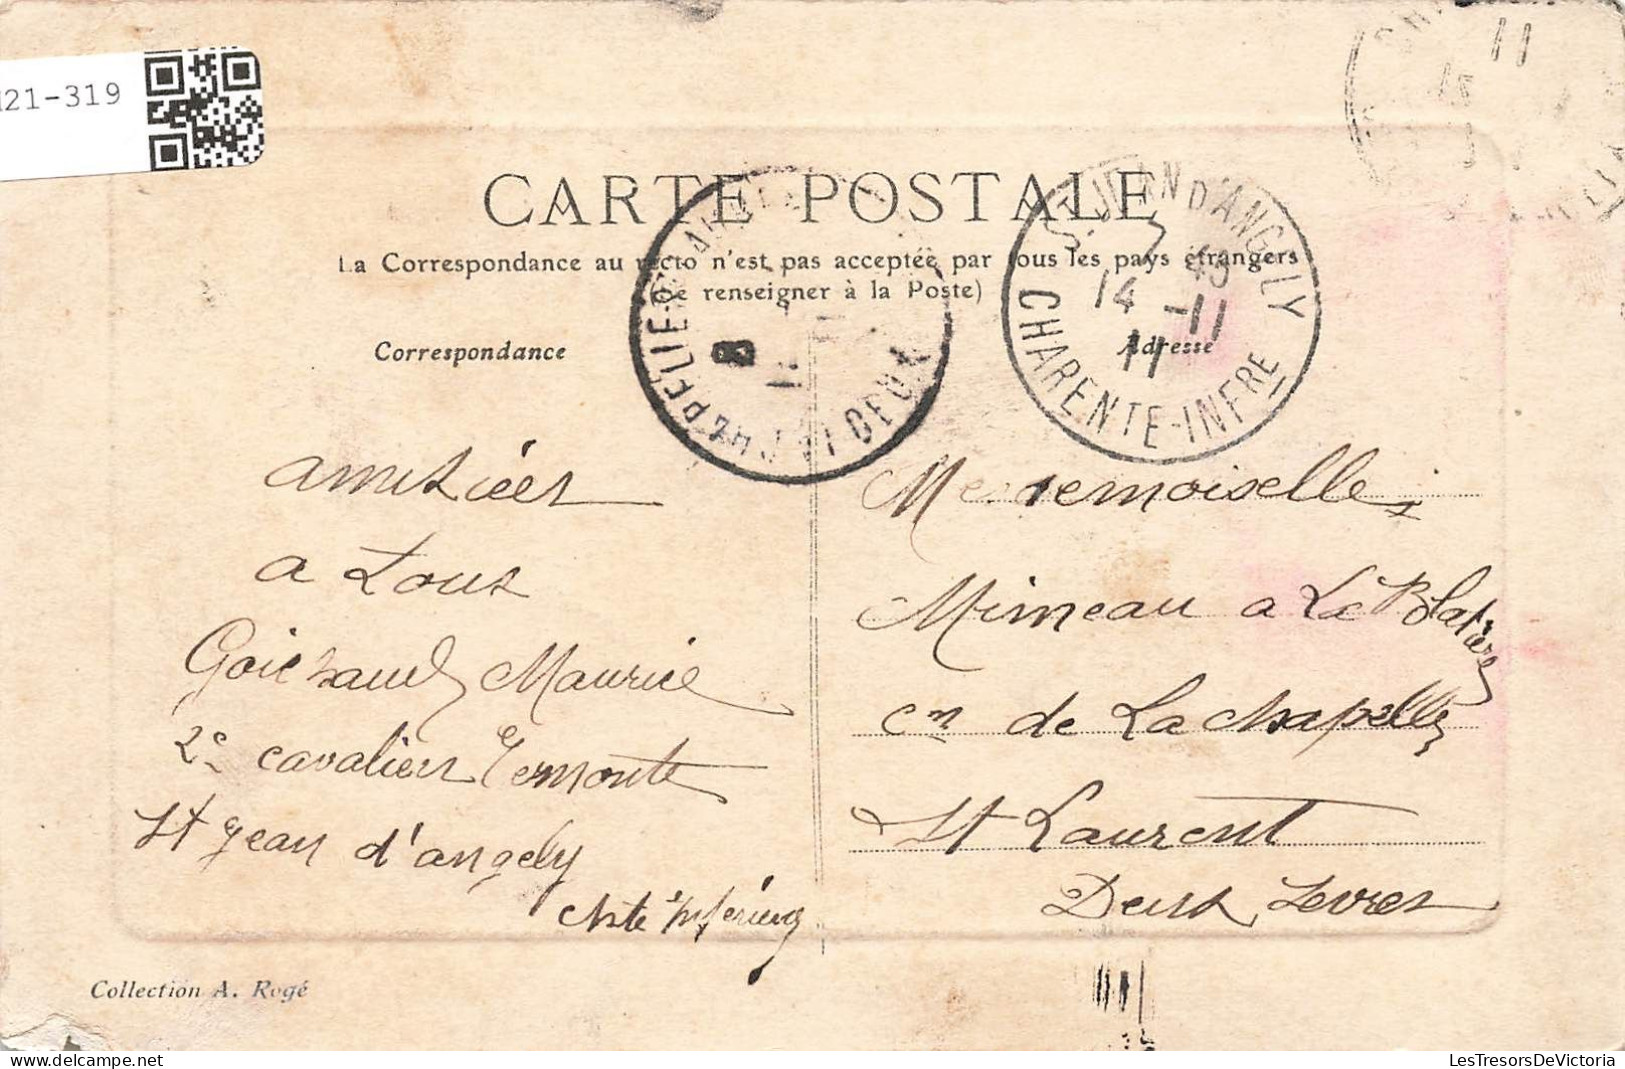 121-319
CARTE POSTALE
La Correspondance au recto n'est pas acceptée par tous les pays étrangers
(Se renseigner à la Poste)
Correspondance
Adresse
ST JEAN D'ANGELY
7 45
14 -11
11
CHARENTE-INFRE
11
8
amitiées
a tous
Goichaud Maurice
2e cavalier remonte
St jean d'angely
chte inférieur
Mademoiselle
Mimeau a La Blatière
Cn de La chapelle
St Laurent
Deux Sevres
Collection A. Rogé
LesTresorsDeVictoria